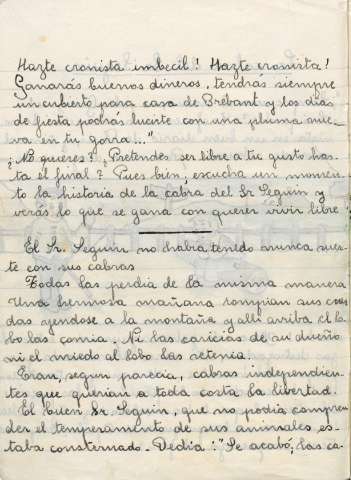 Hazte cronista imbecil! Hazte cronista!
Ganarás buenos dineros, tendrás siempre
un cubierto para casa de Brébant y los dias
de fiesta podrás lucirte con una pluma nue-
va en tu gorra..."
¿No quieres? ¿Pretendes ser libre a tu gusto has-
ta el final? Pues bien, escucha un momen-
to la historia de la cabra del Sr Seguin y
verás lo que se gana con querer vivir libre
El Sr. Seguin no habia tenido nunca suer-
te con sus cabras
Todas las perdia de la misma manera
Una hermosa mañana rompian sus cuer
das yendose a la montaña y alli arriba el lo
bo las comia. Ni las caricias de su dueño
ni el miedo al lobo las retenia.
Eran, segun parecia, cabras independien-
tes que querian a toda costa la libertad.
El buen Sr Seguin, que no podia compren
der el temperamento de sus animales es-
taba consternado. Decia: "Se acabó, las ca-